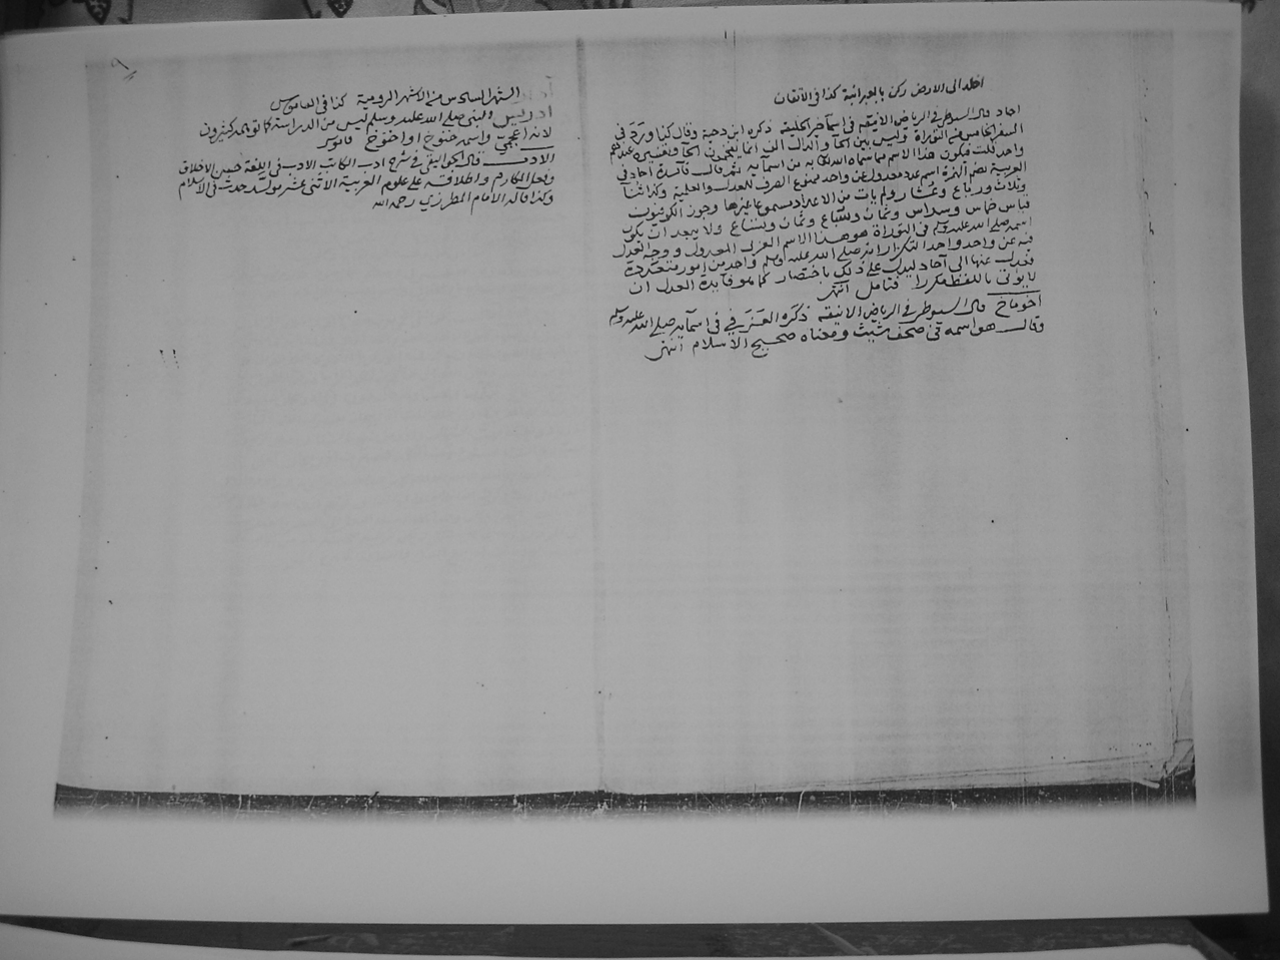 اخلد الى الارض ركن بالعبرانية كذا في الاتقان
احاد قال السيوطي في الرياض الانيقه في اسماء خير الخليقه ذكره ابن دحية وقال كذا ورد في
السفر الخامس من التوراة وليس بين الحا والدال الف انما يفخمون الحا وتفسيره عندهم
واحد قلت فيكون هذا الاسم مما سماه الله تعالى به من اسمائه ثم قال فائدة احاد في
العربية بضم الهمزة اسم عدد معدول عن واحد ممنوع الصرف للعدل والعلمية وكذا ثنا
وثلاث ورباع وعشار ولم يات من الاعداد مسموعا غيرها وجوز الكوفيون
قياس خماس وسداس وثمان وسباع وثمان وتساع ولا يبعد ان يكون
اسمه صلى الله عليه وسلم في التوراة هو هذا الاسم العربي المعدول ووجه العدل
فيه عن واحد واحد التكرار لانه صلى الله عليه وسلم واحد من امور متعددة
فعدل عنها الى آحاد ليدل على ذلك باختصار كما هو فايدة العدل ان
لا يؤتى باللفظ مكررا فتامل انتهى
اخوماخ قال السيوطي في الرياض الانيقه ذكره العزفي في اسمائه صلى الله عليه وسلم
وقال هو اسمه في صحف شيث ومعناه صحيح الاسلام انتهى
الشهر السادس من الاشهر الرومية كذا في القاموس
ادريس النبي صلى الله عليه وسلم ليس من الدراسة كما توهمه كثيرون
لانه اعجمي واسمه خنوخ او احنوخ قاموس
الادب قال الجواليقي في شرح ادب الكاتب الادب في اللغة حسن الاخلاق
وفعل المكارم واطلاقه على علوم العربية الاثنى عشر مولد حدث في الاسلام
وكذا قاله الامام المطرزي رحمه الله